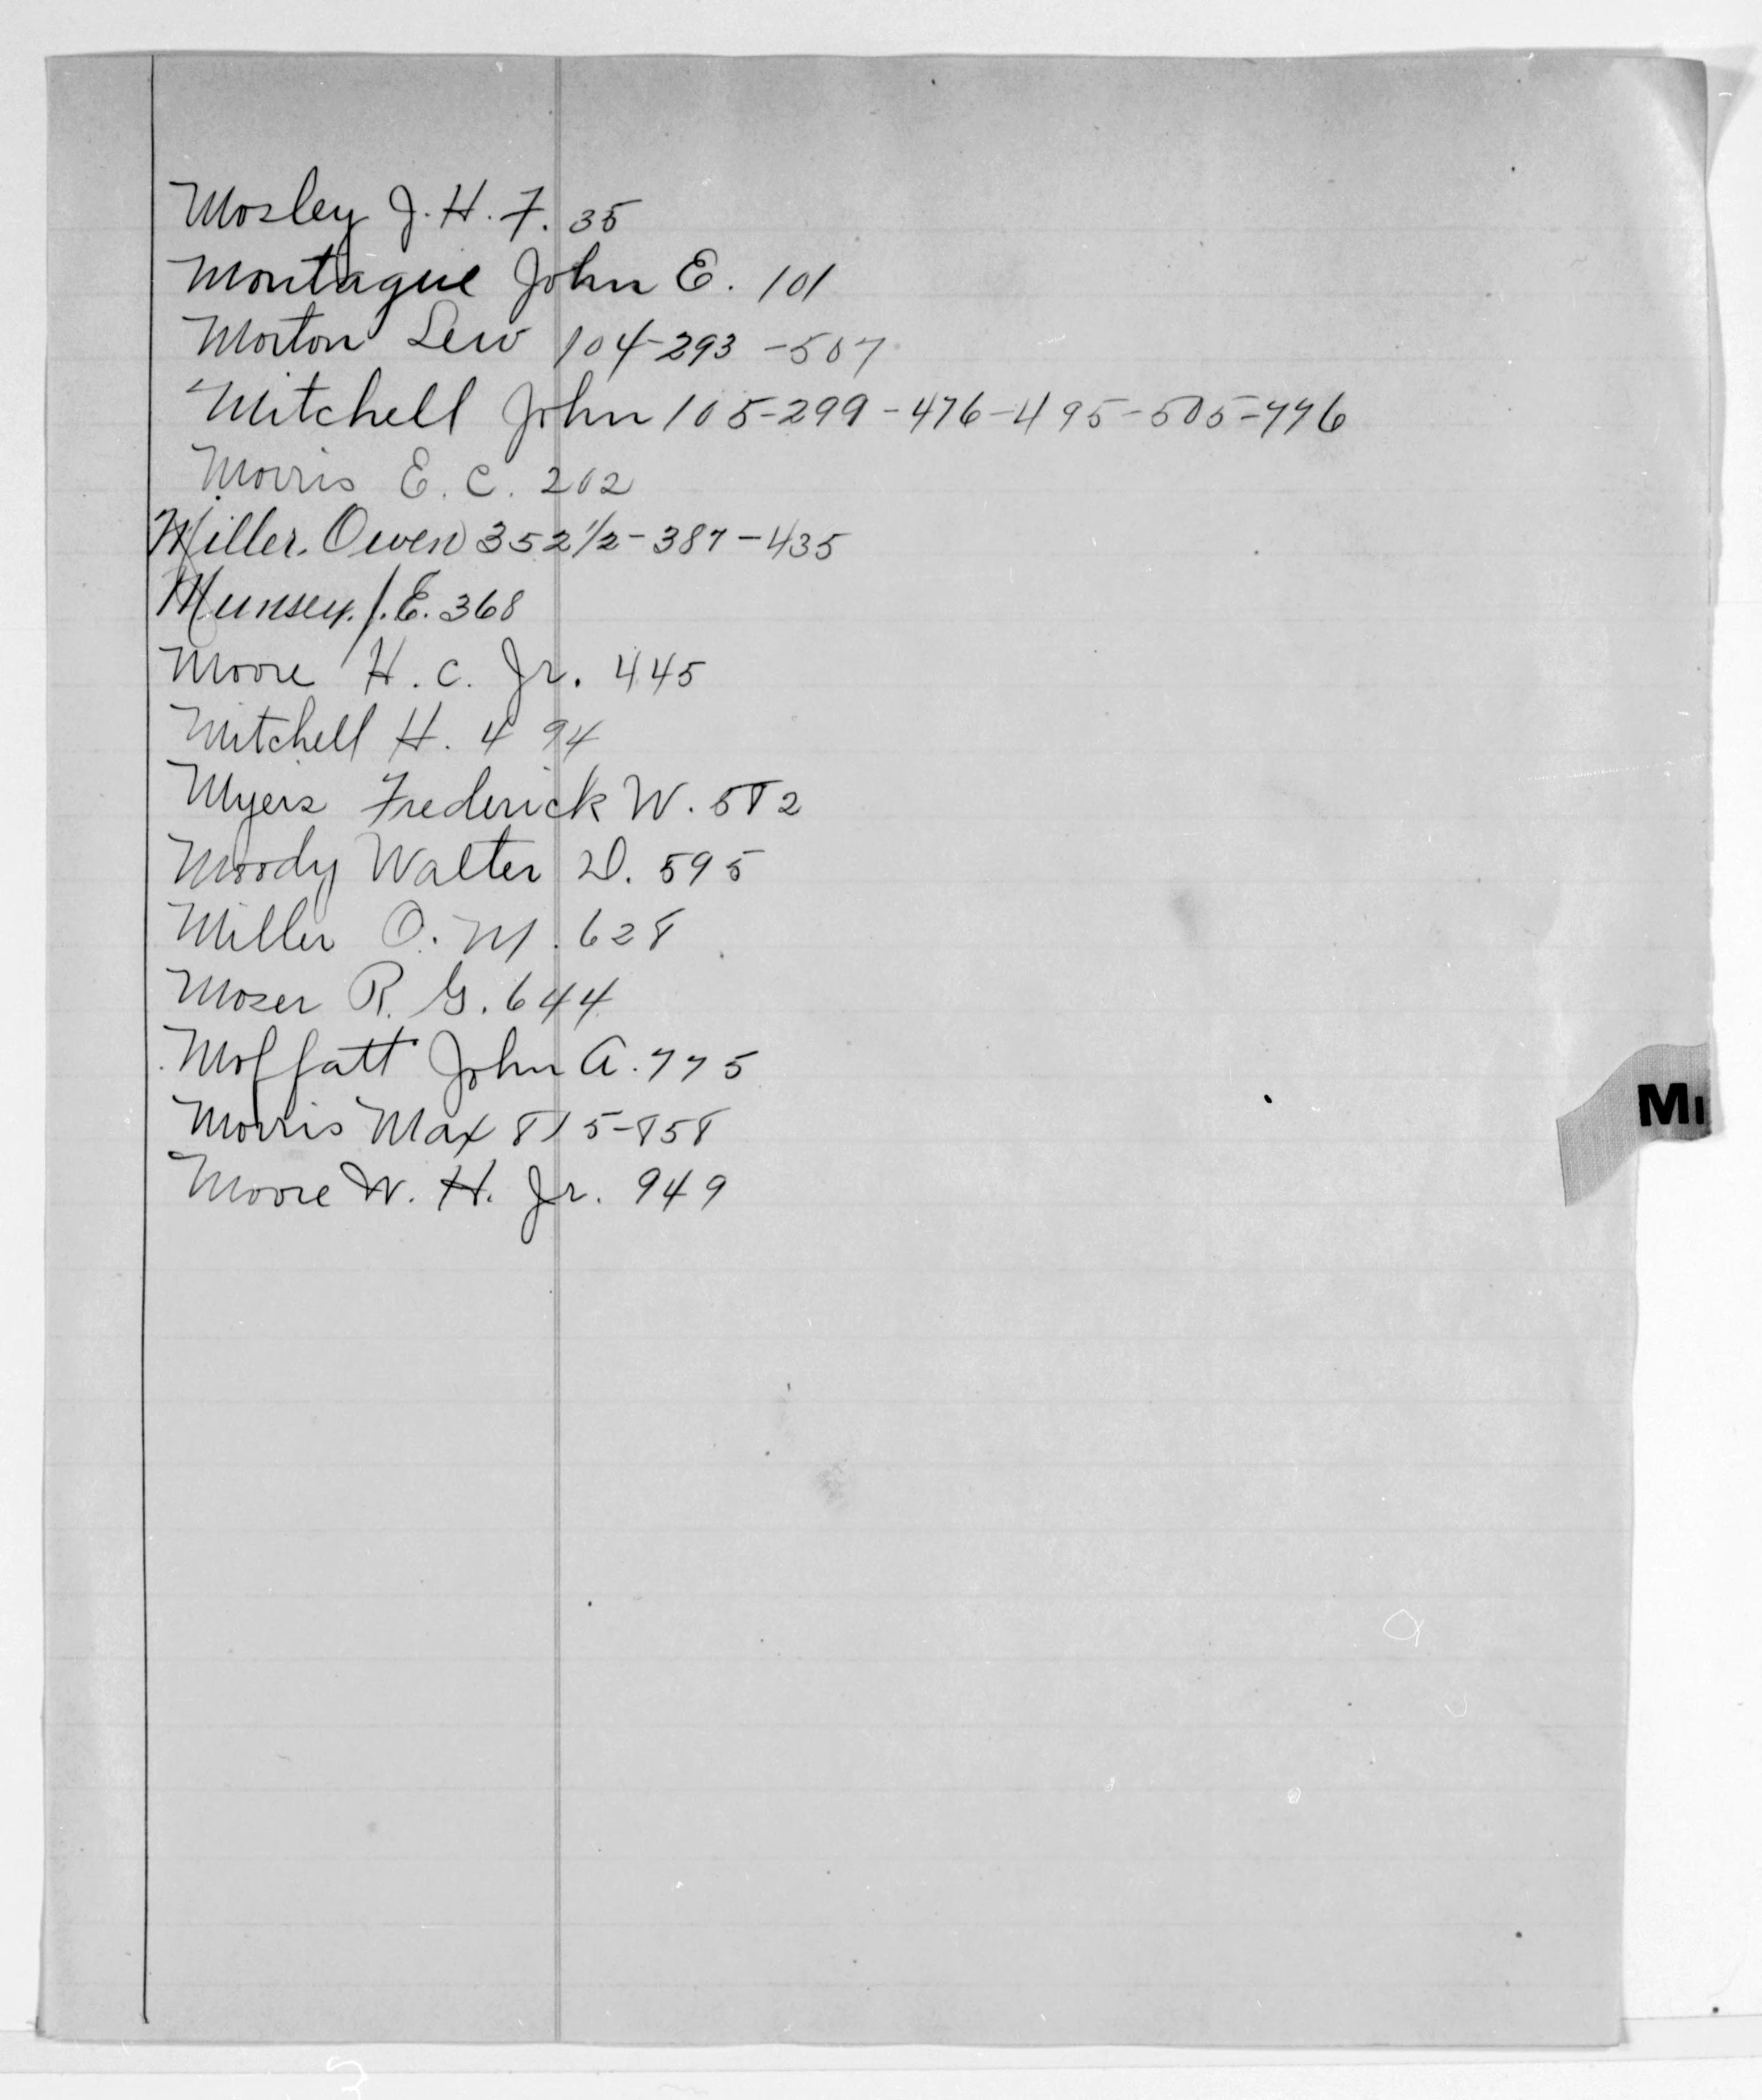 Mosley J. H. F. 35
Montague John E. 101
Morton Lew 104-293-507
Mitchell John 105-299-476-495-505-776
Morris E. C. 202
Miller. Owen 352 1/2-387-435
Munsey. J. E. 368
Moore H. C. Jr. 445
Mitchell H. 494
Myers Frederick W. 582
Moody Walter D. 595
Miller O. M. 628
Moser R. G. 644
Moffatt John A. 775
Morris Max 815-858
Moore W. H. Jr. 949